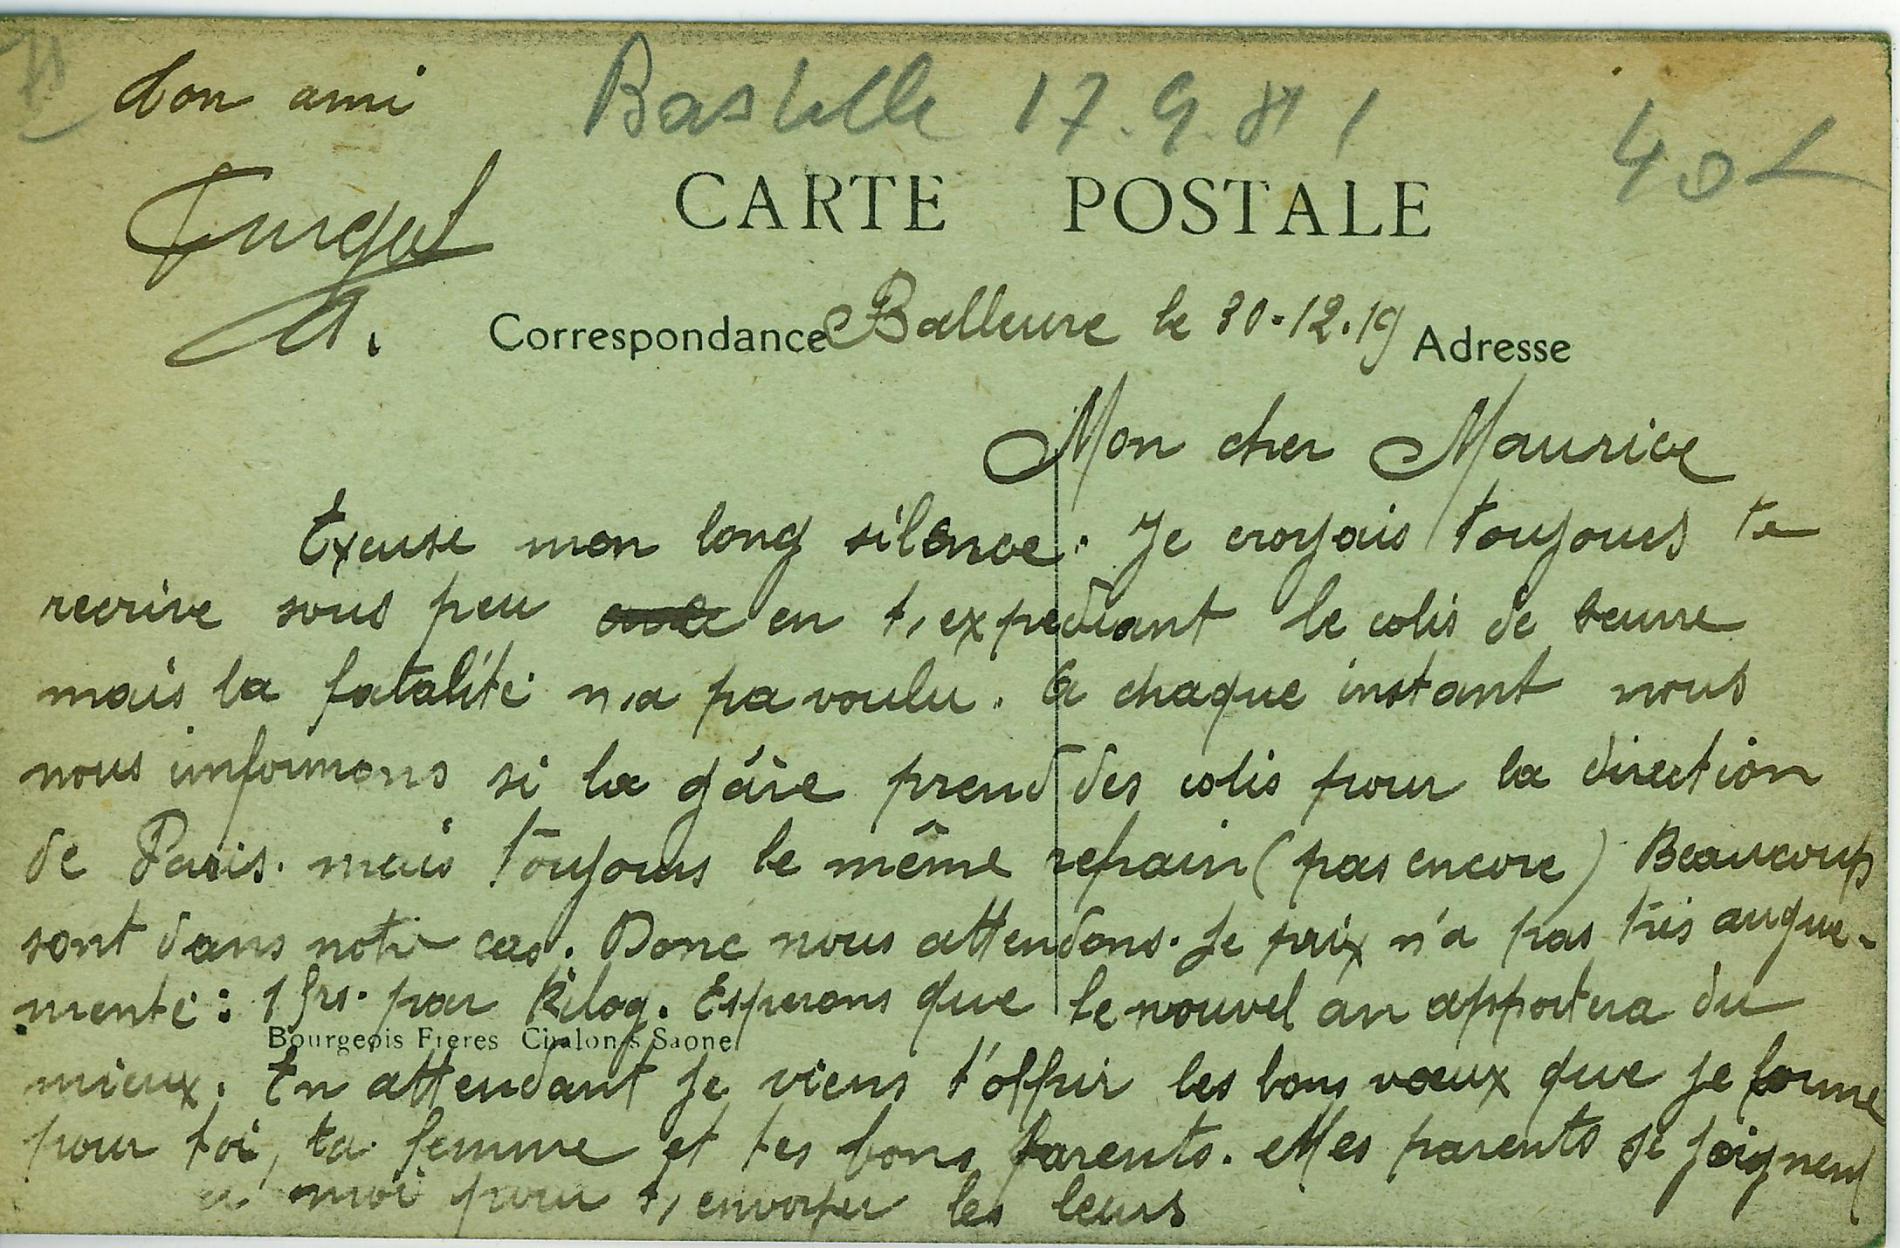 ton ami
Bastille 17.9.81
40
CARTE POSTALE
Turgot
A.
Correspondance
Balleure le 30-12-19
Adresse
Mon cher Maurice
Exeuse mon long silence. Je croyais toujours te
recrire sous peu en t, expediant le colis de beurre
mais la fatalité n,a pa voulu. A chaque instant nous
nous informons si la gâre prend des colis pour la direction
de Paris. mais toujours le même refrain (pas encore) Beaucoup
sont dans notre cas. Donc nous attendons. Le prix n'a pas très augue-
menté : 1 frs. par Kilog. Esperons que le nouvel an apportera du
Bourgeois Freres Chalon s Saone
mieux. En attendant je viens t'offrir les bons vœux que je forme
pour toi, ta femme et tes bons parents. Mes parents se joignent
a moi pour t, envoyer les leurs